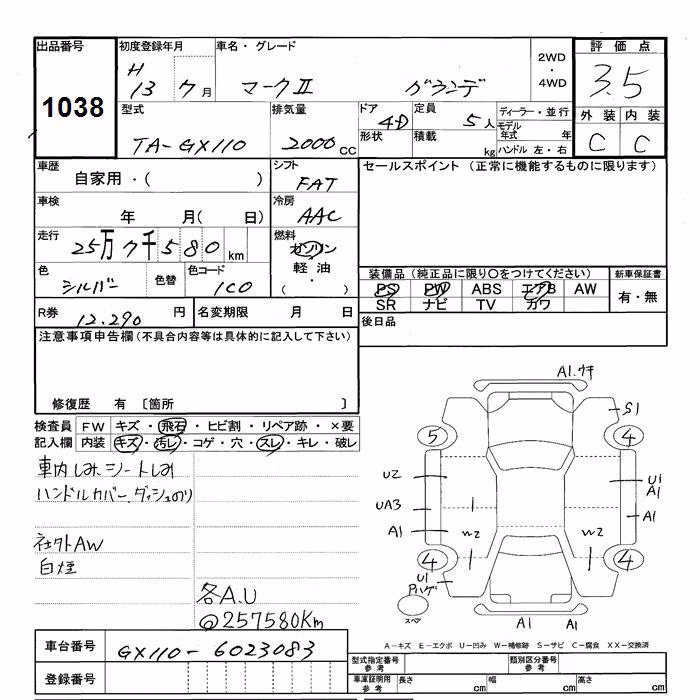 出品番号 初度登録年月 車名・グレード 2WD・4WD 評価点
1038 H13 7月 マークⅡ グランデ 3.5
型式 排気量 ドア 定員 ディーラー・並行 外装 内装
TA-GX110 2000cc 4D 5人 モデル年式 年 C C
形状 積載 kg ハンドル 左・右
車歴 シフト セールスポイント (正常に機能するものに限ります)
自家用・( ) FAT
車検 冷房
年 月( 日) AAC
走行 燃料
25万7千580km ガソリン
色 色替 色コード 軽油
シルバー 1C0 (・)
装備品(純正品に限り○をつけてください) 新車保証書
PS PW ABS エアB AW 有・無
SR ナビ TV カワ
R券 12.290円 名変期限 月 日
後日品
注意事項申告欄(不具合内容等は具体的に記入して下さい)
修復歴 有 〔箇所 〕
検査員 FW キズ・飛石・ヒビ割・リペア跡・×要
記入欄 内装 キズ・汚レ・コゲ・穴・スレ・キレ・破レ
車内しみ、シートしみ
ハンドルカバー、ダッシュのり
社外AW
白煙
各A.U
@257580Km
A1.ケキ
S1
5 4
U2 U1
A1
UA3 A1
A1 W2 W2
4 4
U1
Pハゲ
スペア
A1 A1
A-キズ E-エクボ U-凹み W-補修跡 S-サビ C-腐食 XX-交換済
車台番号 GX110-6023083
登録番号
型式指定番号 参考 類別区分番号 参考
車庫証明用 参考 長さ cm 幅 cm 高さ cm